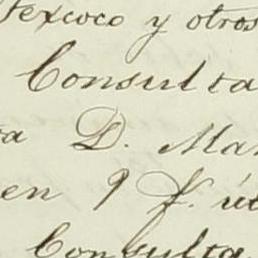 Texcoco y otros
Consulta
D. Ma
en 9 f. út
Consulta